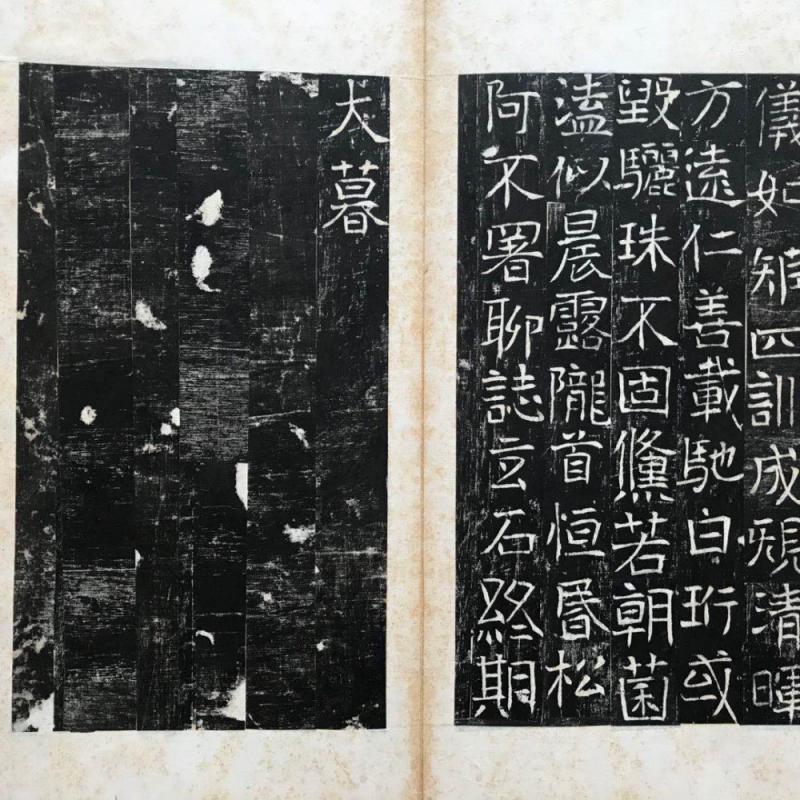 儀如矩四訓成規清暉
方遠仁善載馳白珩或
毀驪珠不固儵若朝菌
溘似晨露隴首恒昬松
阿不署聊誌玄石終期
大暮